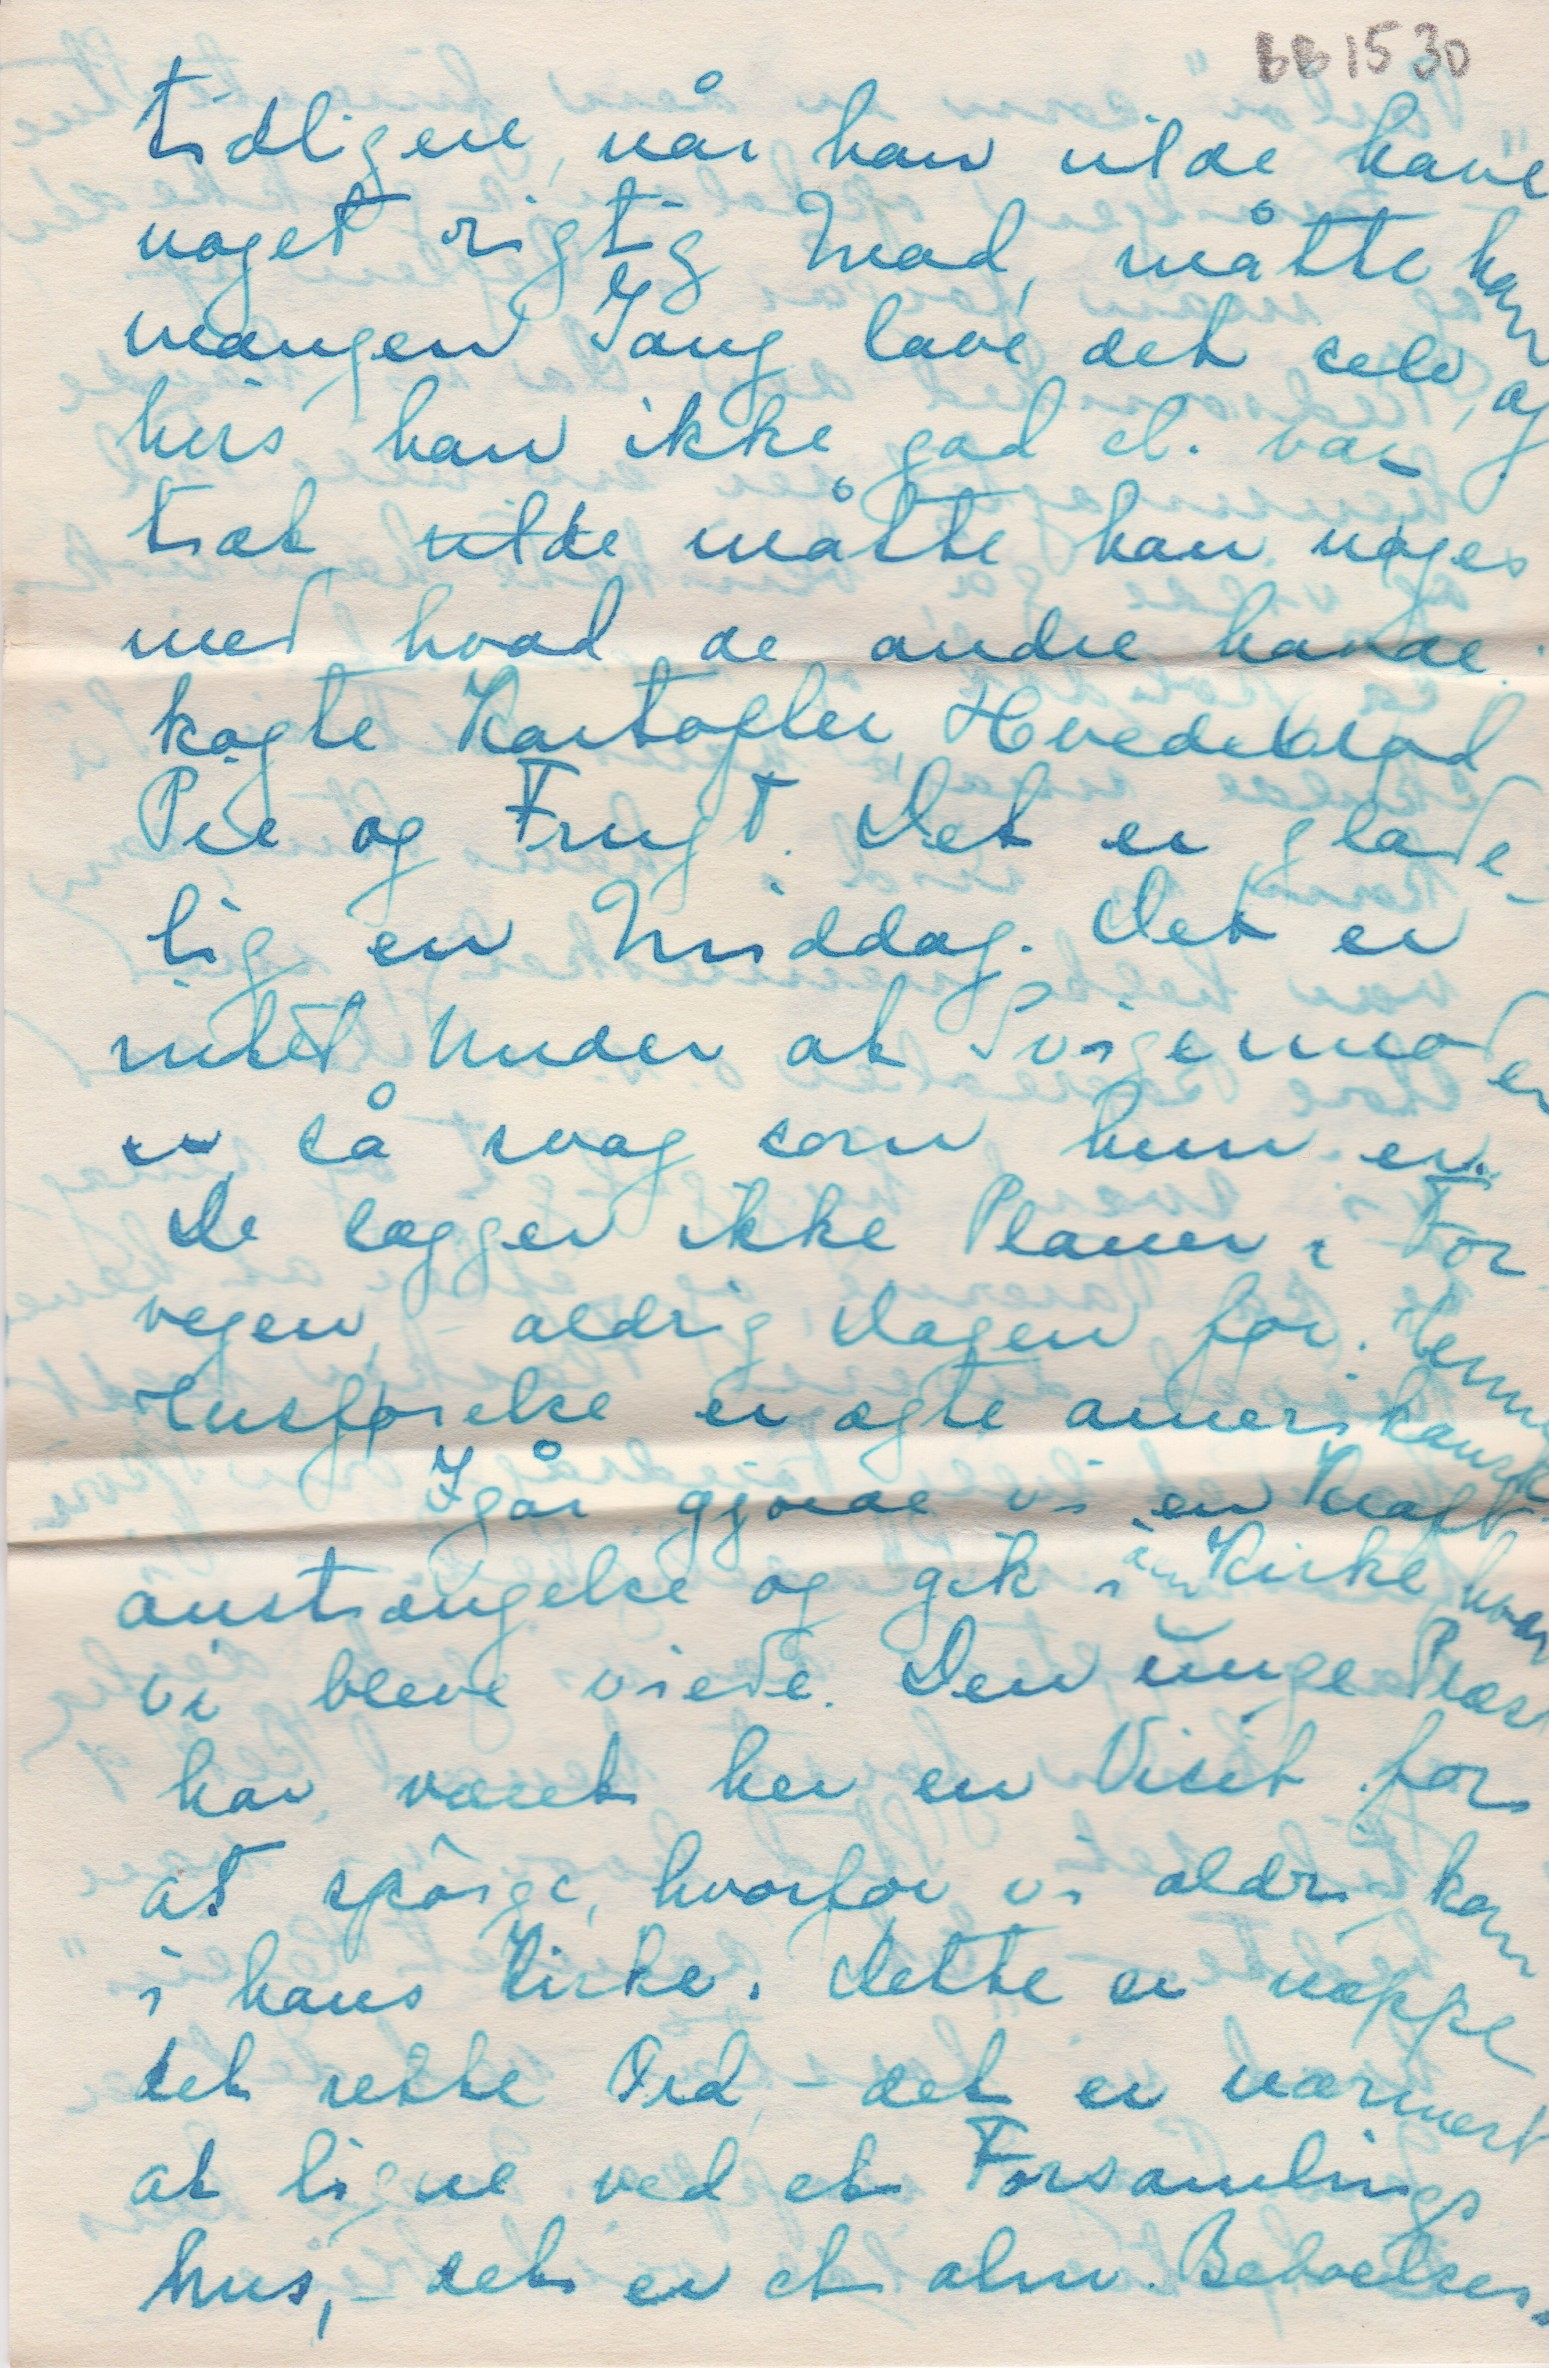 BB1530
tidligere, når han vilde have
noget rigtig Mad, måtte han
mangen Gang lave det selv, og
hvis han ikke gad el. var
træt vilde måtte han nøjes
med hvad de andre havde.
kogte Kartofler, Hvedebrød
Pie og Frugt. Det er glade-
lig en Middag. Det er
intet Under at Svigermoder
er så svag som hun er.
De lægger ikke Planer i For
vejen, - aldrig Dagen før. Denne
Husførelse er ægte amerikansk.
Igår gjorde vi en Kraft
anstrængelse og gik i den Kirke hvor
vi bleve viede. Den unge Præst
har været her en Visit for
at spørge, hvorfor vi aldrig kom
i hans Kirke. Dette er næppe
det rette Ord, - det er nærmest
at ligne ved et Forsamlings
hus, - det er et alm. Beboelses